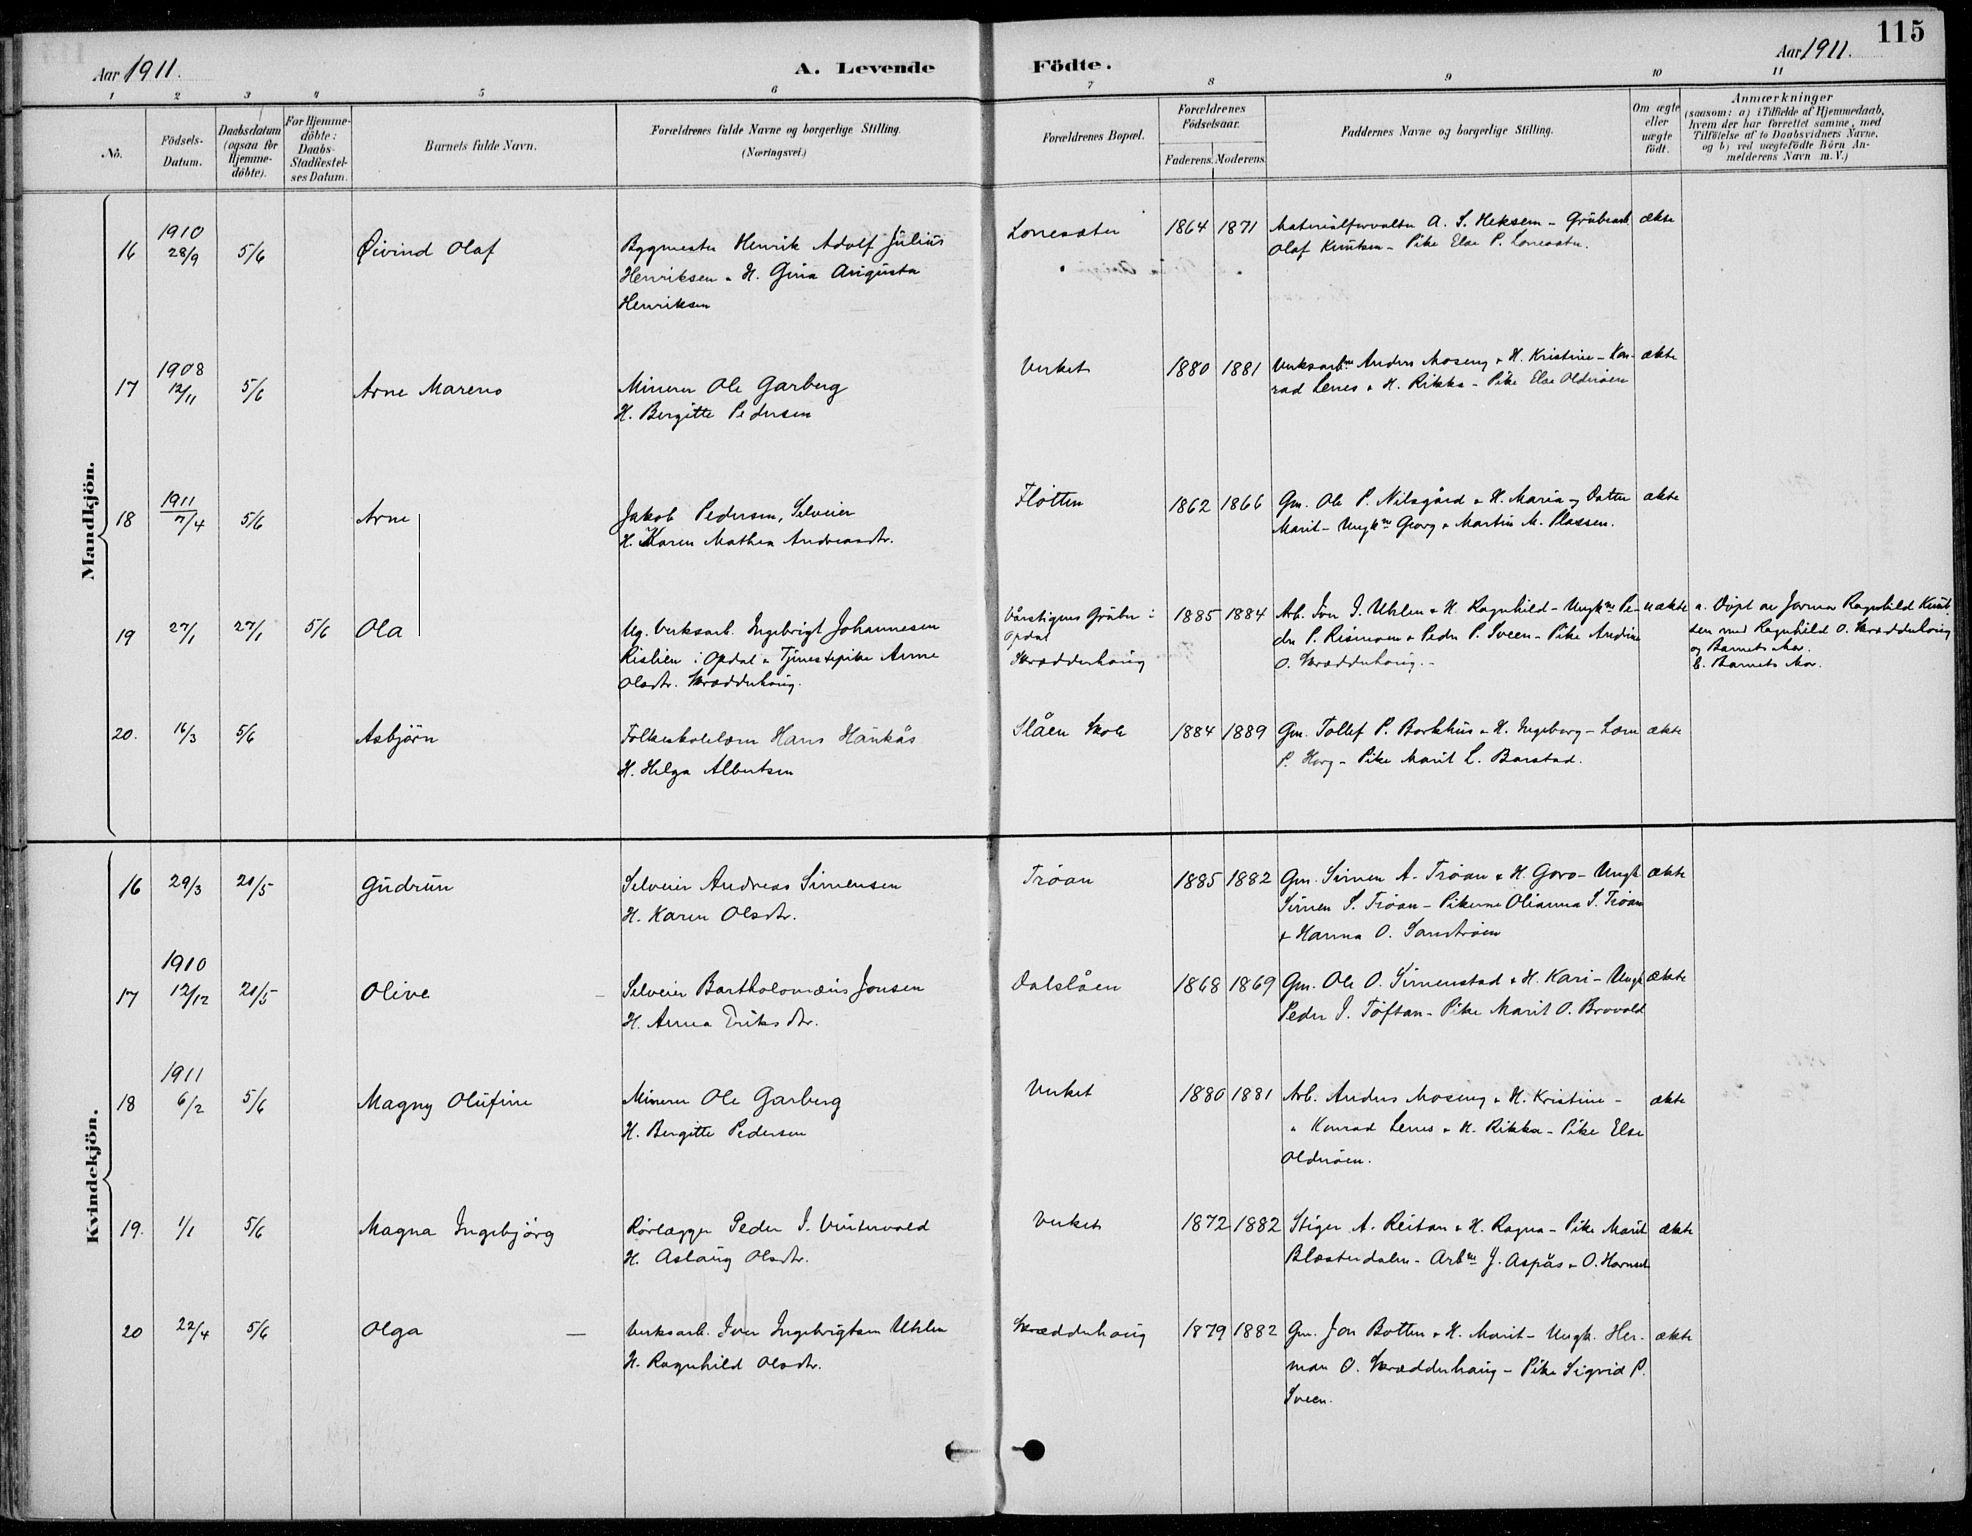 115
Aar 1911.
A. Levende Födte.
Aar 1911.
1 2 3 4 5 6 7 8 9 10 11
No.
Födsels-Datum.
Daabsdatum (ogsaa for Hjemme-döbte).
For Hjemme-döbte: Daabs-Stadfæstel-ses Datum.
Barnets fulde Navn.
Forældrenes fulde Navne og borgerlige Stilling.
(Næringsvei.)
Forældrenes Bopæl.
Forældrenes Födselsaar.
Faderens. Moderens.
Faddernes Navne og borgerlige Stilling.
Om ægte eller uægte födt.
Anmærkninger
(saasom: a) i Tilfælde af Hjemmedaab,
hvem der har forrettet samme, med
Tilföielse af to Daabsvidners Navne,
og b) ved uægtefödte Börn An-
melderens Navn m. V.)
Mandkjön.
16 1910 28/9 5/6 Øivind Olaf
Bygmester Henrik Adolf Julius
Henriksen & H. Gina Augusta
Henriksen
Lonesæter 1864 1871
Materialforvalter A. S. Heksem - Grubearb.
Olaf Knutsen - Pike Else P. Lonesæter.
ækte
17 1908 12/11 5/6 Arne Mareno
Minerer Ole Garberg
H. Bergitte Pedersen
Verket 1880 1881
Verksarb. Anders Moseng & H. Kristine - Kon-
rad Lenes & H. Rikka - Pike Else Olderøien
ækte
18 1911 7/4 5/6 Arne
Jakob Pedersen, Selveier
H. Karen Mathea Andreasdtr.
Fløtten 1862 1866
Gm. Ole P. Nilsgård & H. Maria og Datter
Marit - Ungkne Georg & Martin M. Plassen.
ækte
19 27/1 27/1 5/6 Ola
Ug. Verksarb. Ingebrigt Johannesen
Rislien i Opdal & Tjenestepike Anne
Olsdtr. Skrædderhaug.
Vårstigens Gruber i
Opdal
Skrædderhaug
1885 1884
Arb. Iver I. Uhlen & H. Ragnhild - Ungkne Pe-
der P. Rismoen & Peder P. Sveen - Pike Andrine
O. Skrædderhaug. -
uækte
a. Døpt av Jormor Ragnhild Knut-
sen med Ragnhild O. Skrædderhaug
og Barnets Mor.
b. Barnets Mor.
20. 16/3 5/6 Asbjörn
Folkeskolelærer Hans Haukås
H. Helga Albertsen
Slåen Skole 1884 1889
Gm. Tollef P. Borkhus & H. Ingeborg - Lærer
P. Horg - Pike Marit L. Barstad.
ækte
Kvindekjön.
16 29/3 21/5 Gudrun
Selveier Andreas Simensen
H. Karen Olsdtr.
Trøan 1885 1882
Gm. Simen A. Trøan & H. Goro - Ungk
Simen S. Trøan - Pikerne Olianna S. Trøan
& Hanna O. Sandrøen
ækte
17 1910 12/12 21/5 Olive
Selveier Bartholomæus Jonsen
H. Anna Eriksdtr.
Dalslåen 1868 1869
Gm. Ole O. Simenstad & H. Kari - Ungk
Peder J. Tøftan - Pike Marit O. Brovold
ækte
18 1911 6/2 5/6 Magny Olufine
Minerer Ole Garberg
H. Bergitte Pedersen
Verket 1880 1881
Arb. Anders Moseng & H. Kristine -
& Konrad Lenes & H. Rikka - Pike Else
Olderøien.
ækte
19. 1/1 5/6 Magna Ingebjörg
Rørlægger Peder I. Vintervold
H. Aslaug Olsdtr.
Verket 1872 1882
Stiger A. Reitan & H. Ragna - Pike Marit
Blæsterdalen - Arbne J. Aspås & O.
ækte
20 22/4 5/6 Olga
Verksarb. Iver Ingebrigtsen Uhlen
H. Ragnhild Olsdtr.
Skrædderhaug 1879 1882
Gm. Jon Botten & H. Marit - Ungk. Her-
man O. Skrædderhaug - Pike Sigrid P.
Sveen.
ækte